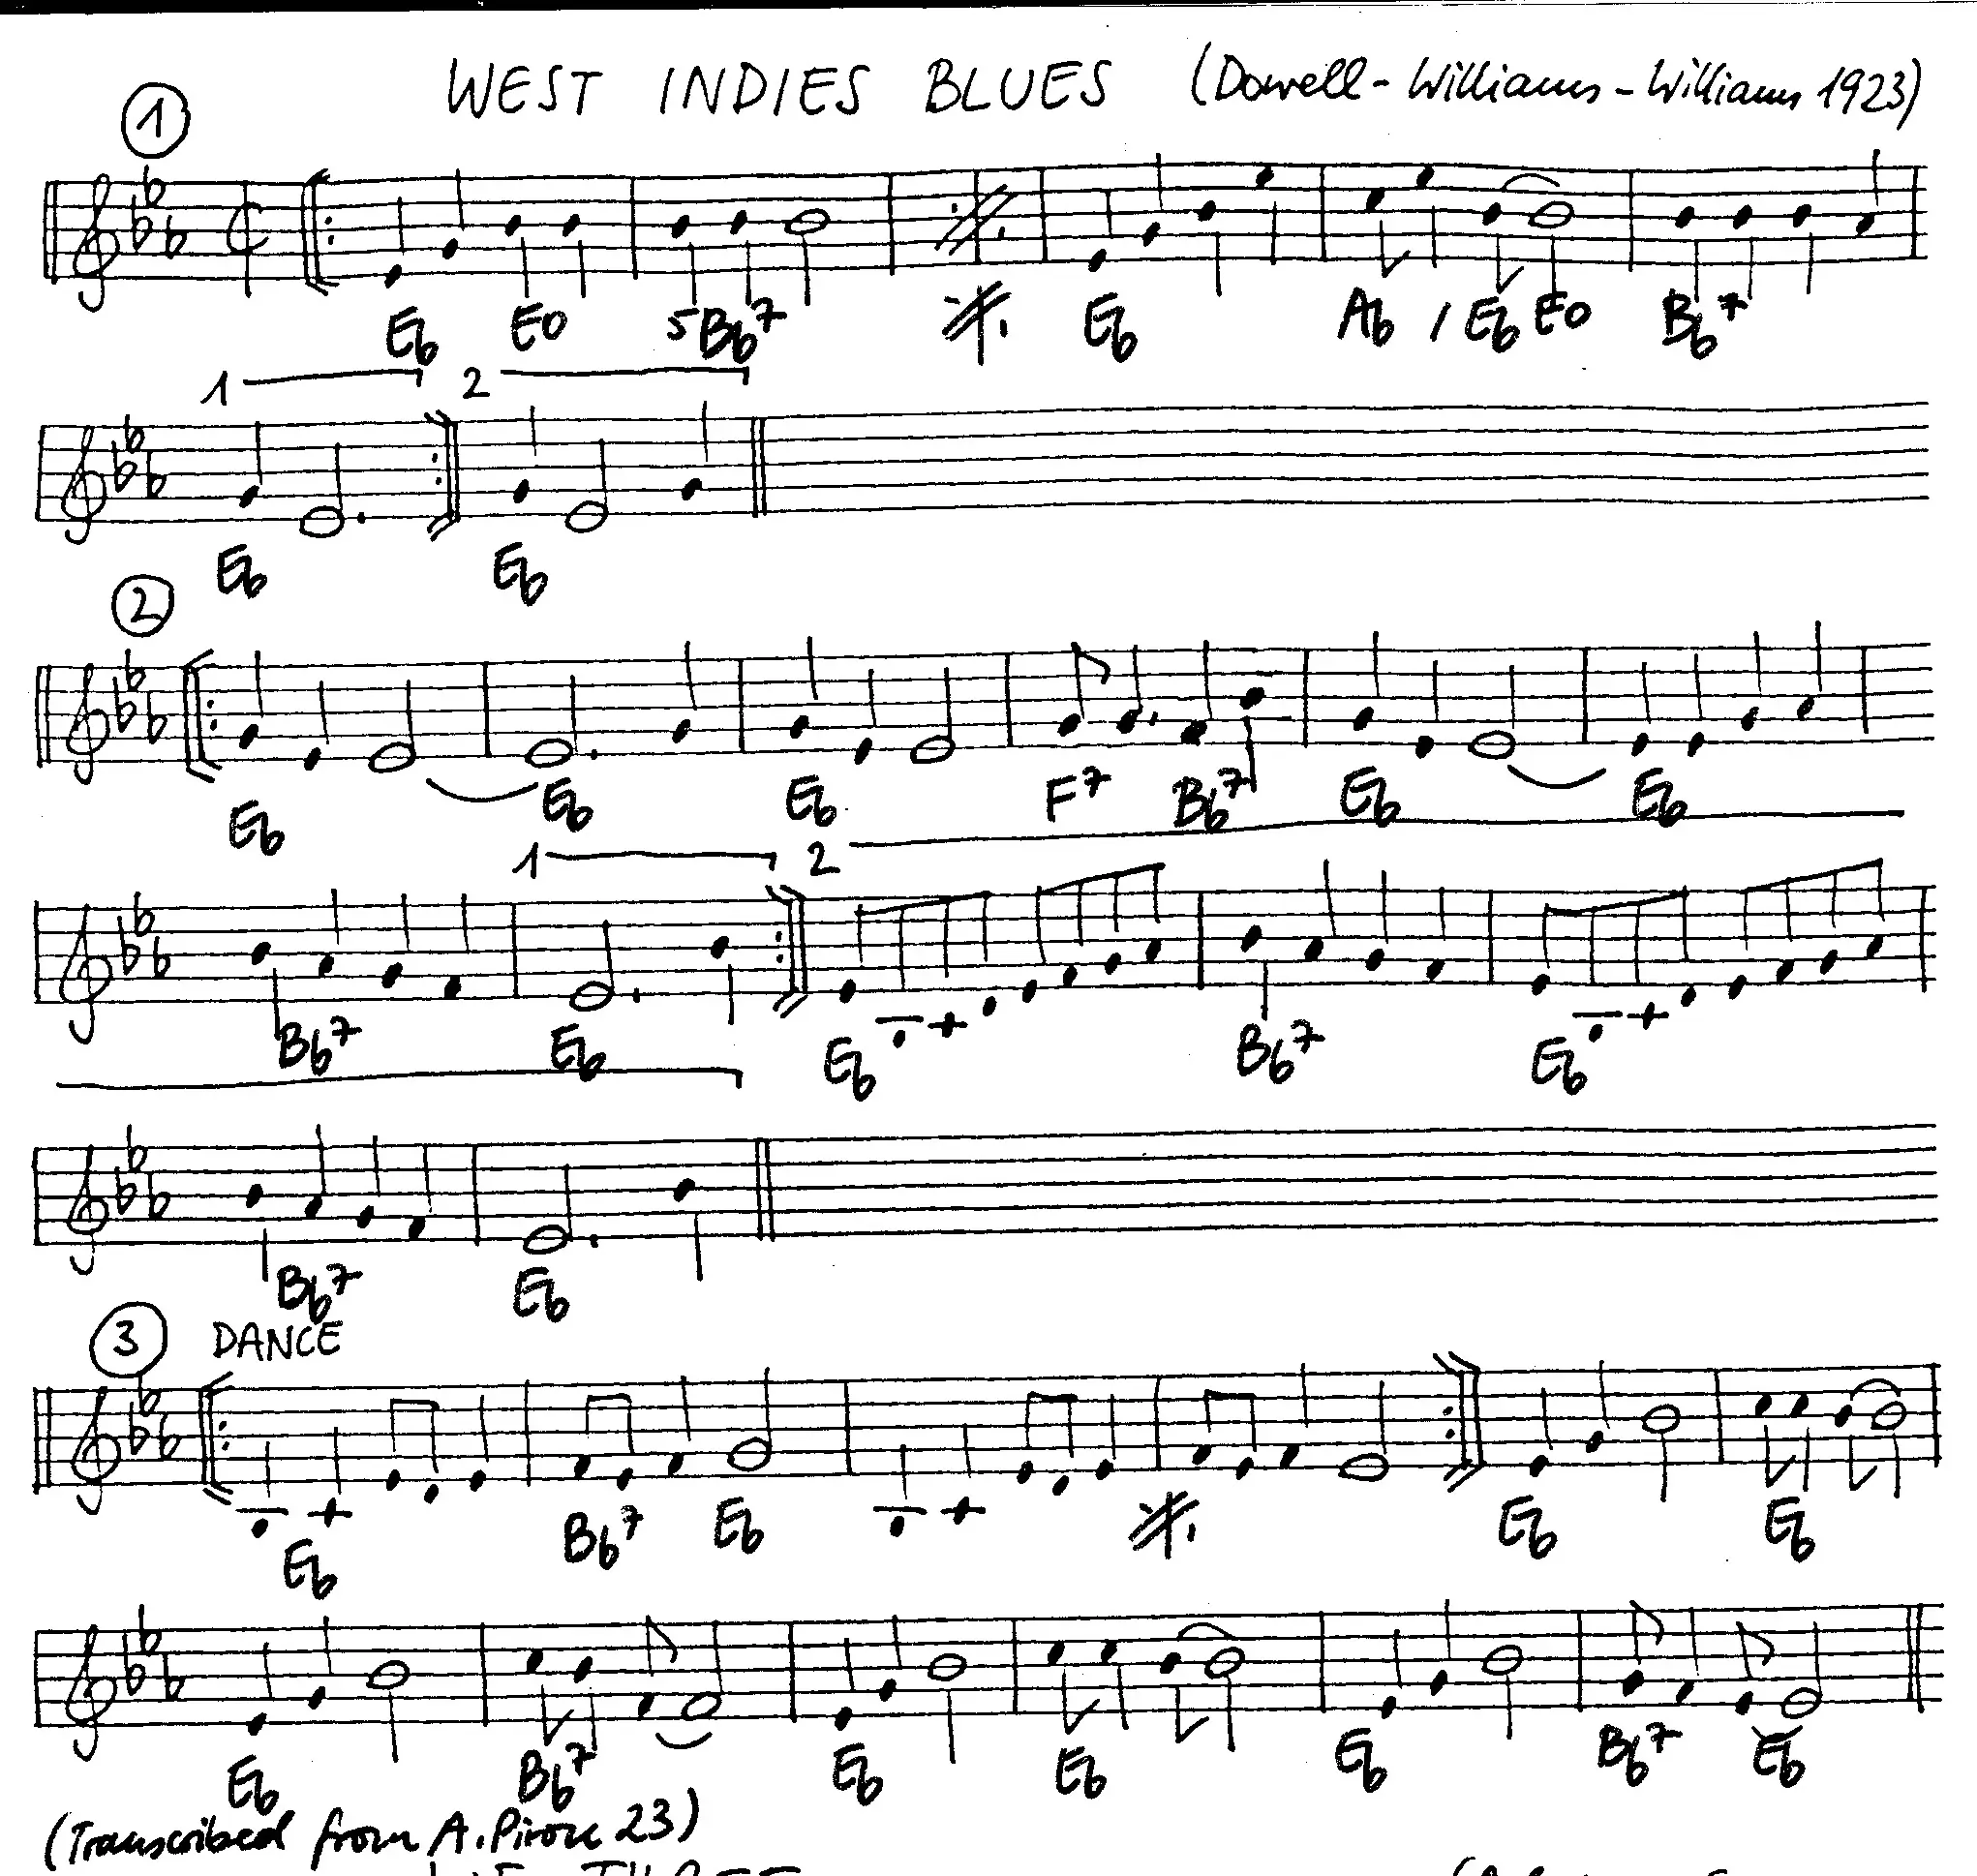 WEST INDIES BLUES (Dowell - Williams - Williams 1923)
1
Eb Eo 5 Bb7 Eb Ab / Eb Eo Bb7
1 2
Eb Eb
2
Eb Eb Eb F7 Bb7 Eb Eb
1 2
Bb7 Eb Eb Bb7 Eb
Bb7 Eb
3 DANCE
Eb Bb7 Eb Eb Eb
Eb Bb7 Eb Eb Eb Bb7 Eb
(Transcribed from A. Piron 23)